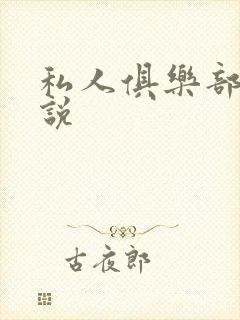 私人俱樂部
説
古夜郎